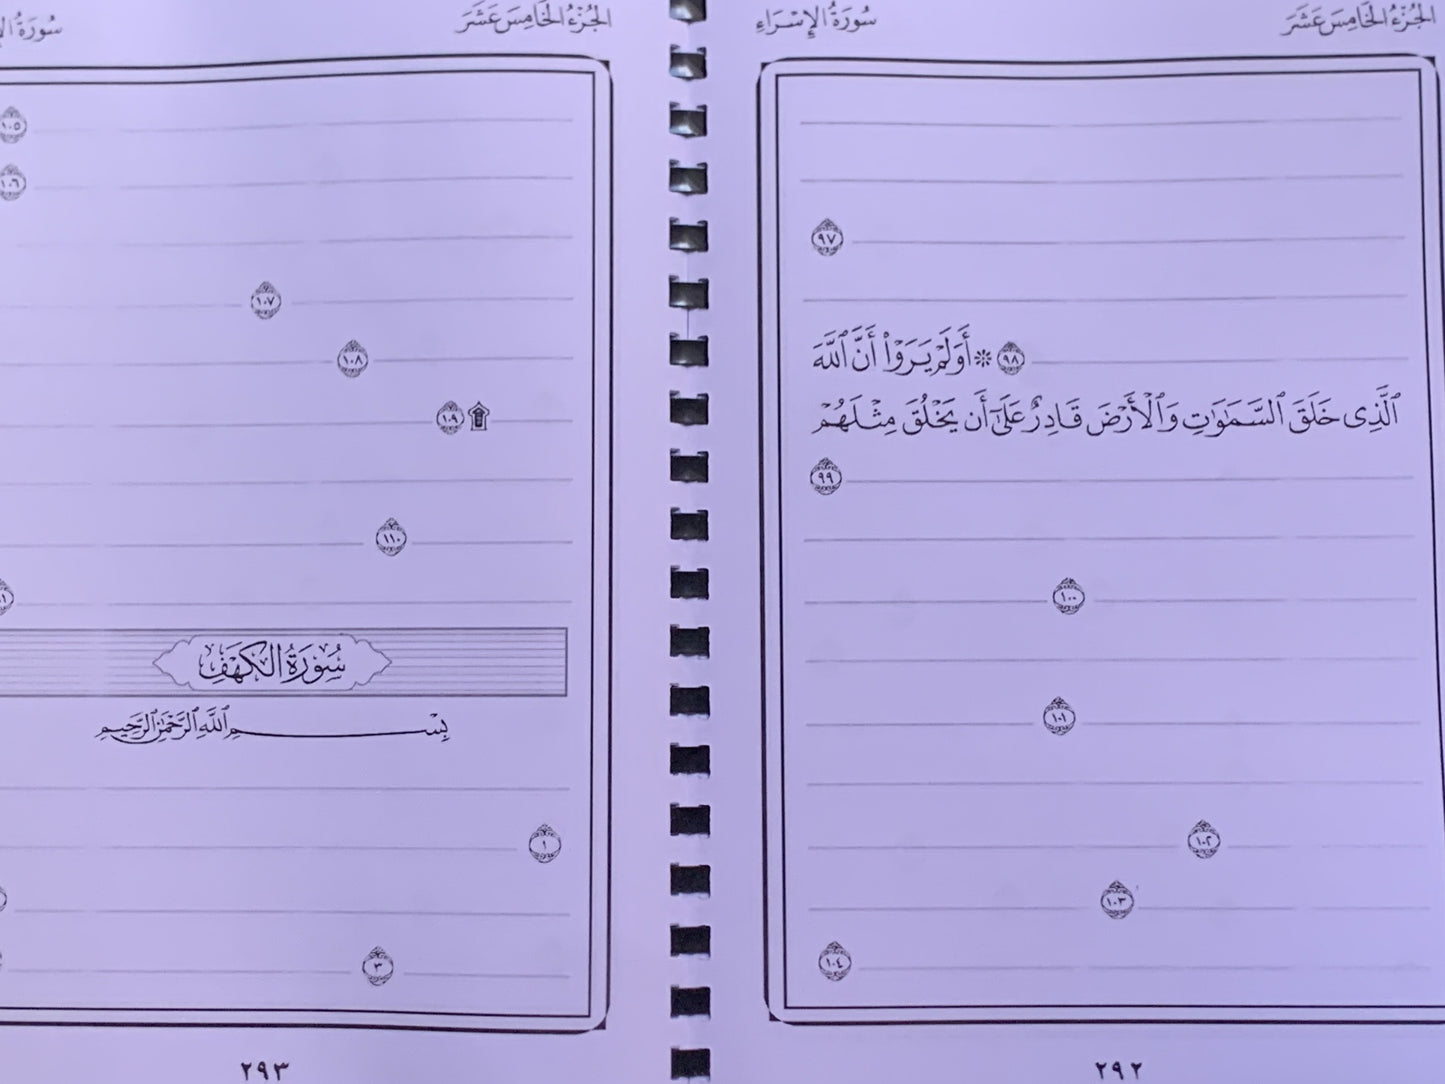 الجُزْءُ الخَامِسَ عَشَرَ
سُورَةُ الإِسْرَاءِ
٩٧
٩٨ ۞ أَوَلَمْ يَرَوْا۟ أَنَّ ٱللَّهَ
ٱلَّذِى خَلَقَ ٱلسَّمَٰوَٰتِ وَٱلْأَرْضَ قَادِرٌ عَلَىٰٓ أَن يَخْلُقَ مِثْلَهُمْ
٩٩
١٠٠
١٠١
١٠٢
١٠٣
١٠٤
٢٩٢
الجُزْءُ الخَامِسَ عَشَرَ
سُورَةُ
١٠٥
١٠٦
١٠٧
١٠٨
۩ ١٠٩
١١٠
سُورَةُ الكَهْفِ
بِسْمِ ٱللَّهِ ٱلرَّحْمَٰنِ ٱلرَّحِيمِ
١
٣
٢٩٣